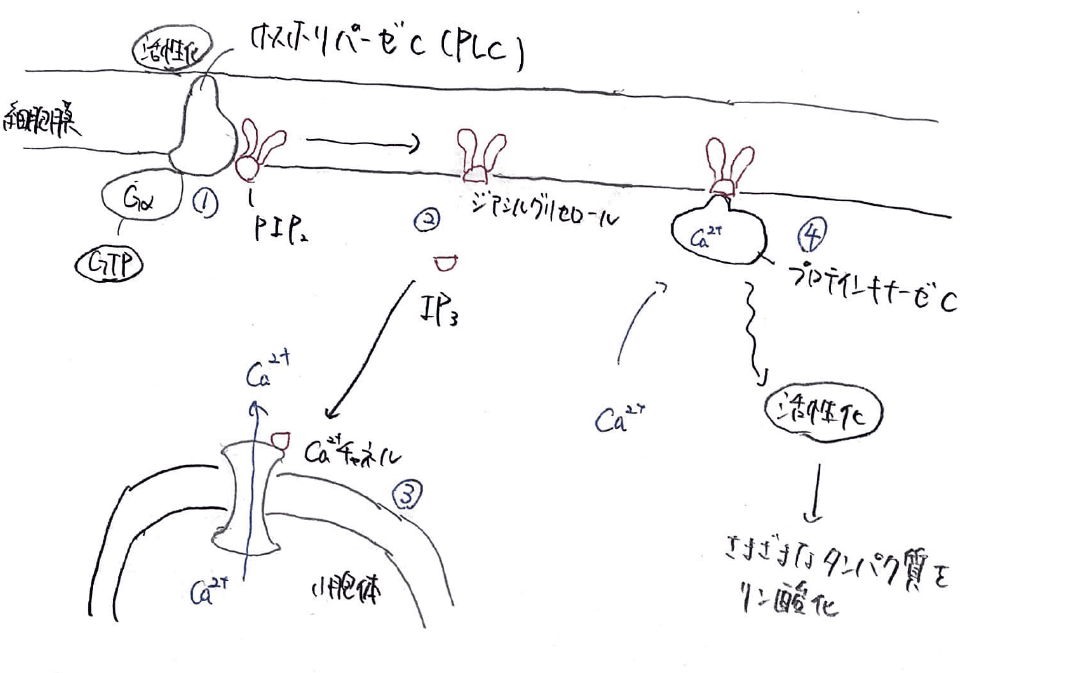 活性化
ホスホリパーゼC(PLC)
細胞膜
Gα
①
GTP
PIP₂
②
ジアシルグリセロール
IP₃
Ca²⁺
④
プロテインキナーゼC
Ca²⁺
Ca²⁺
活性化
Ca²⁺チャネル
③
Ca²⁺
小胞体
さまざまなタンパク質を
リン酸化